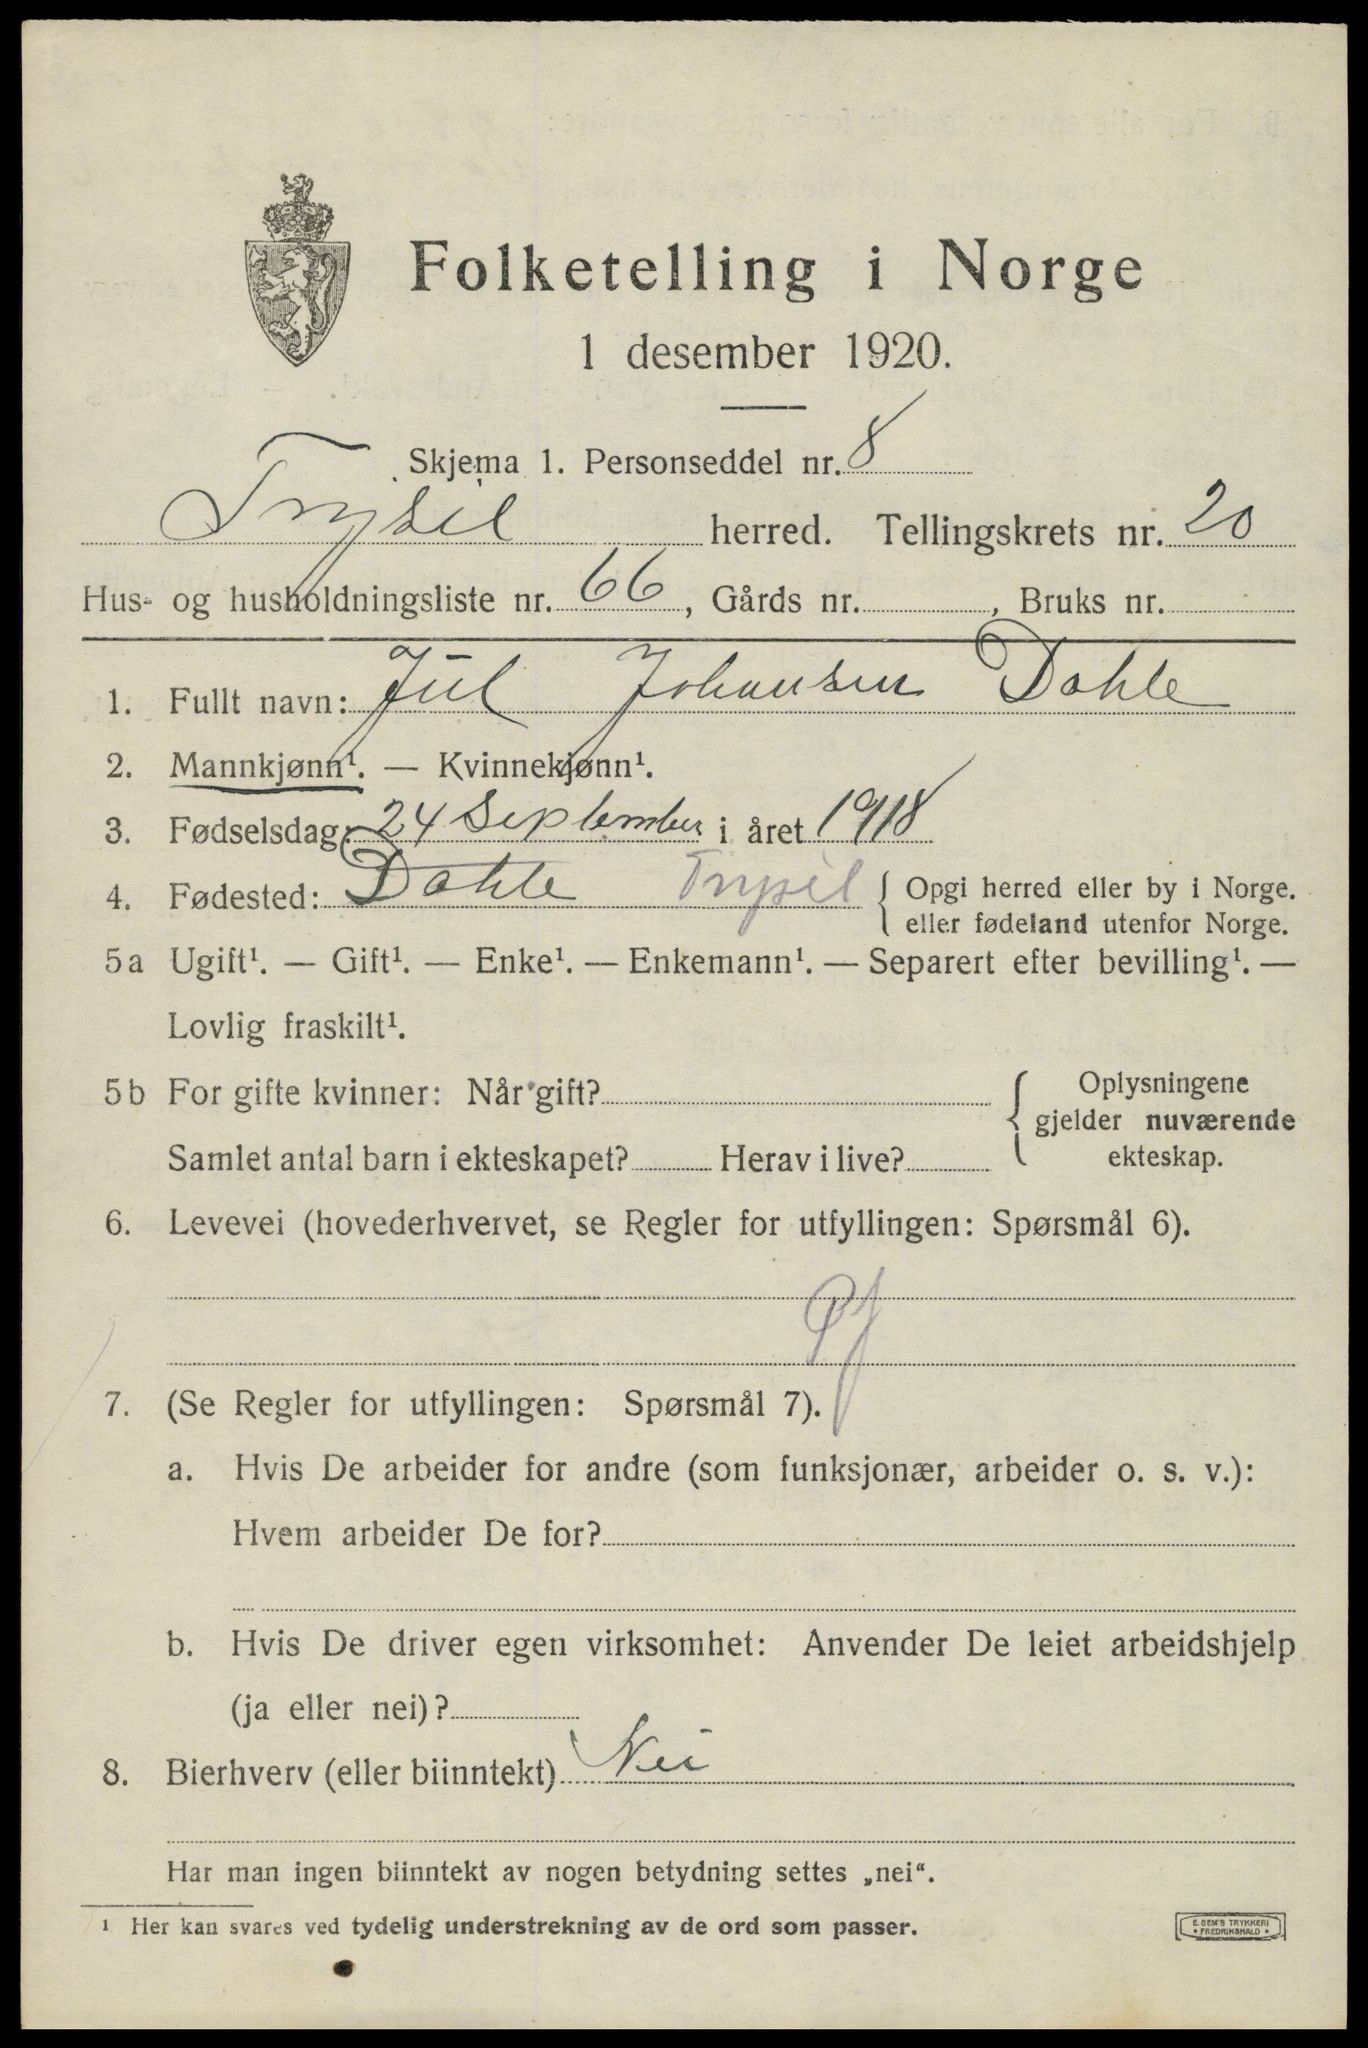 Folketelling i Norge
1 desember 1920.
Skjema 1. Personseddel nr. 8
Trysil herred. Tellingskrets nr. 20
Hus- og husholdningsliste nr. 66, Gårds nr. , Bruks nr.
1. Fullt navn: Jul Johansen Dahle
2. Mannkjønn¹. — Kvinnekjønn¹.
3. Fødselsdag: 24 September i året 1918
4. Fødested: Dahle Trysil { Opgi herred eller by i Norge.
eller fødeland utenfor Norge.
5a Ugift¹. — Gift¹. — Enke¹. — Enkemann¹. — Separert efter bevilling¹. —
Lovlig fraskilt¹.
5b For gifte kvinner: Når gift? { Oplysningene
gjelder nuværende
Samlet antal barn i ekteskapet? Herav i live? ekteskap.
6. Levevei (hovederhvervet, se Regler for utfyllingen: Spørsmål 6).
7. (Se Regler for utfyllingen: Spørsmål 7).
a. Hvis De arbeider for andre (som funksjonær, arbeider o. s. v.):
Hvem arbeider De for?
b. Hvis De driver egen virksomhet: Anvender De leiet arbeidshjelp
(ja eller nei)?
8. Bierhverv (eller biinntekt) Nei
Har man ingen biinntekt av nogen betydning settes „nei“.
¹ Her kan svares ved tydelig understrekning av de ord som passer.
E. SEM'S TRYKKERI
* FREDRIKSHALD *